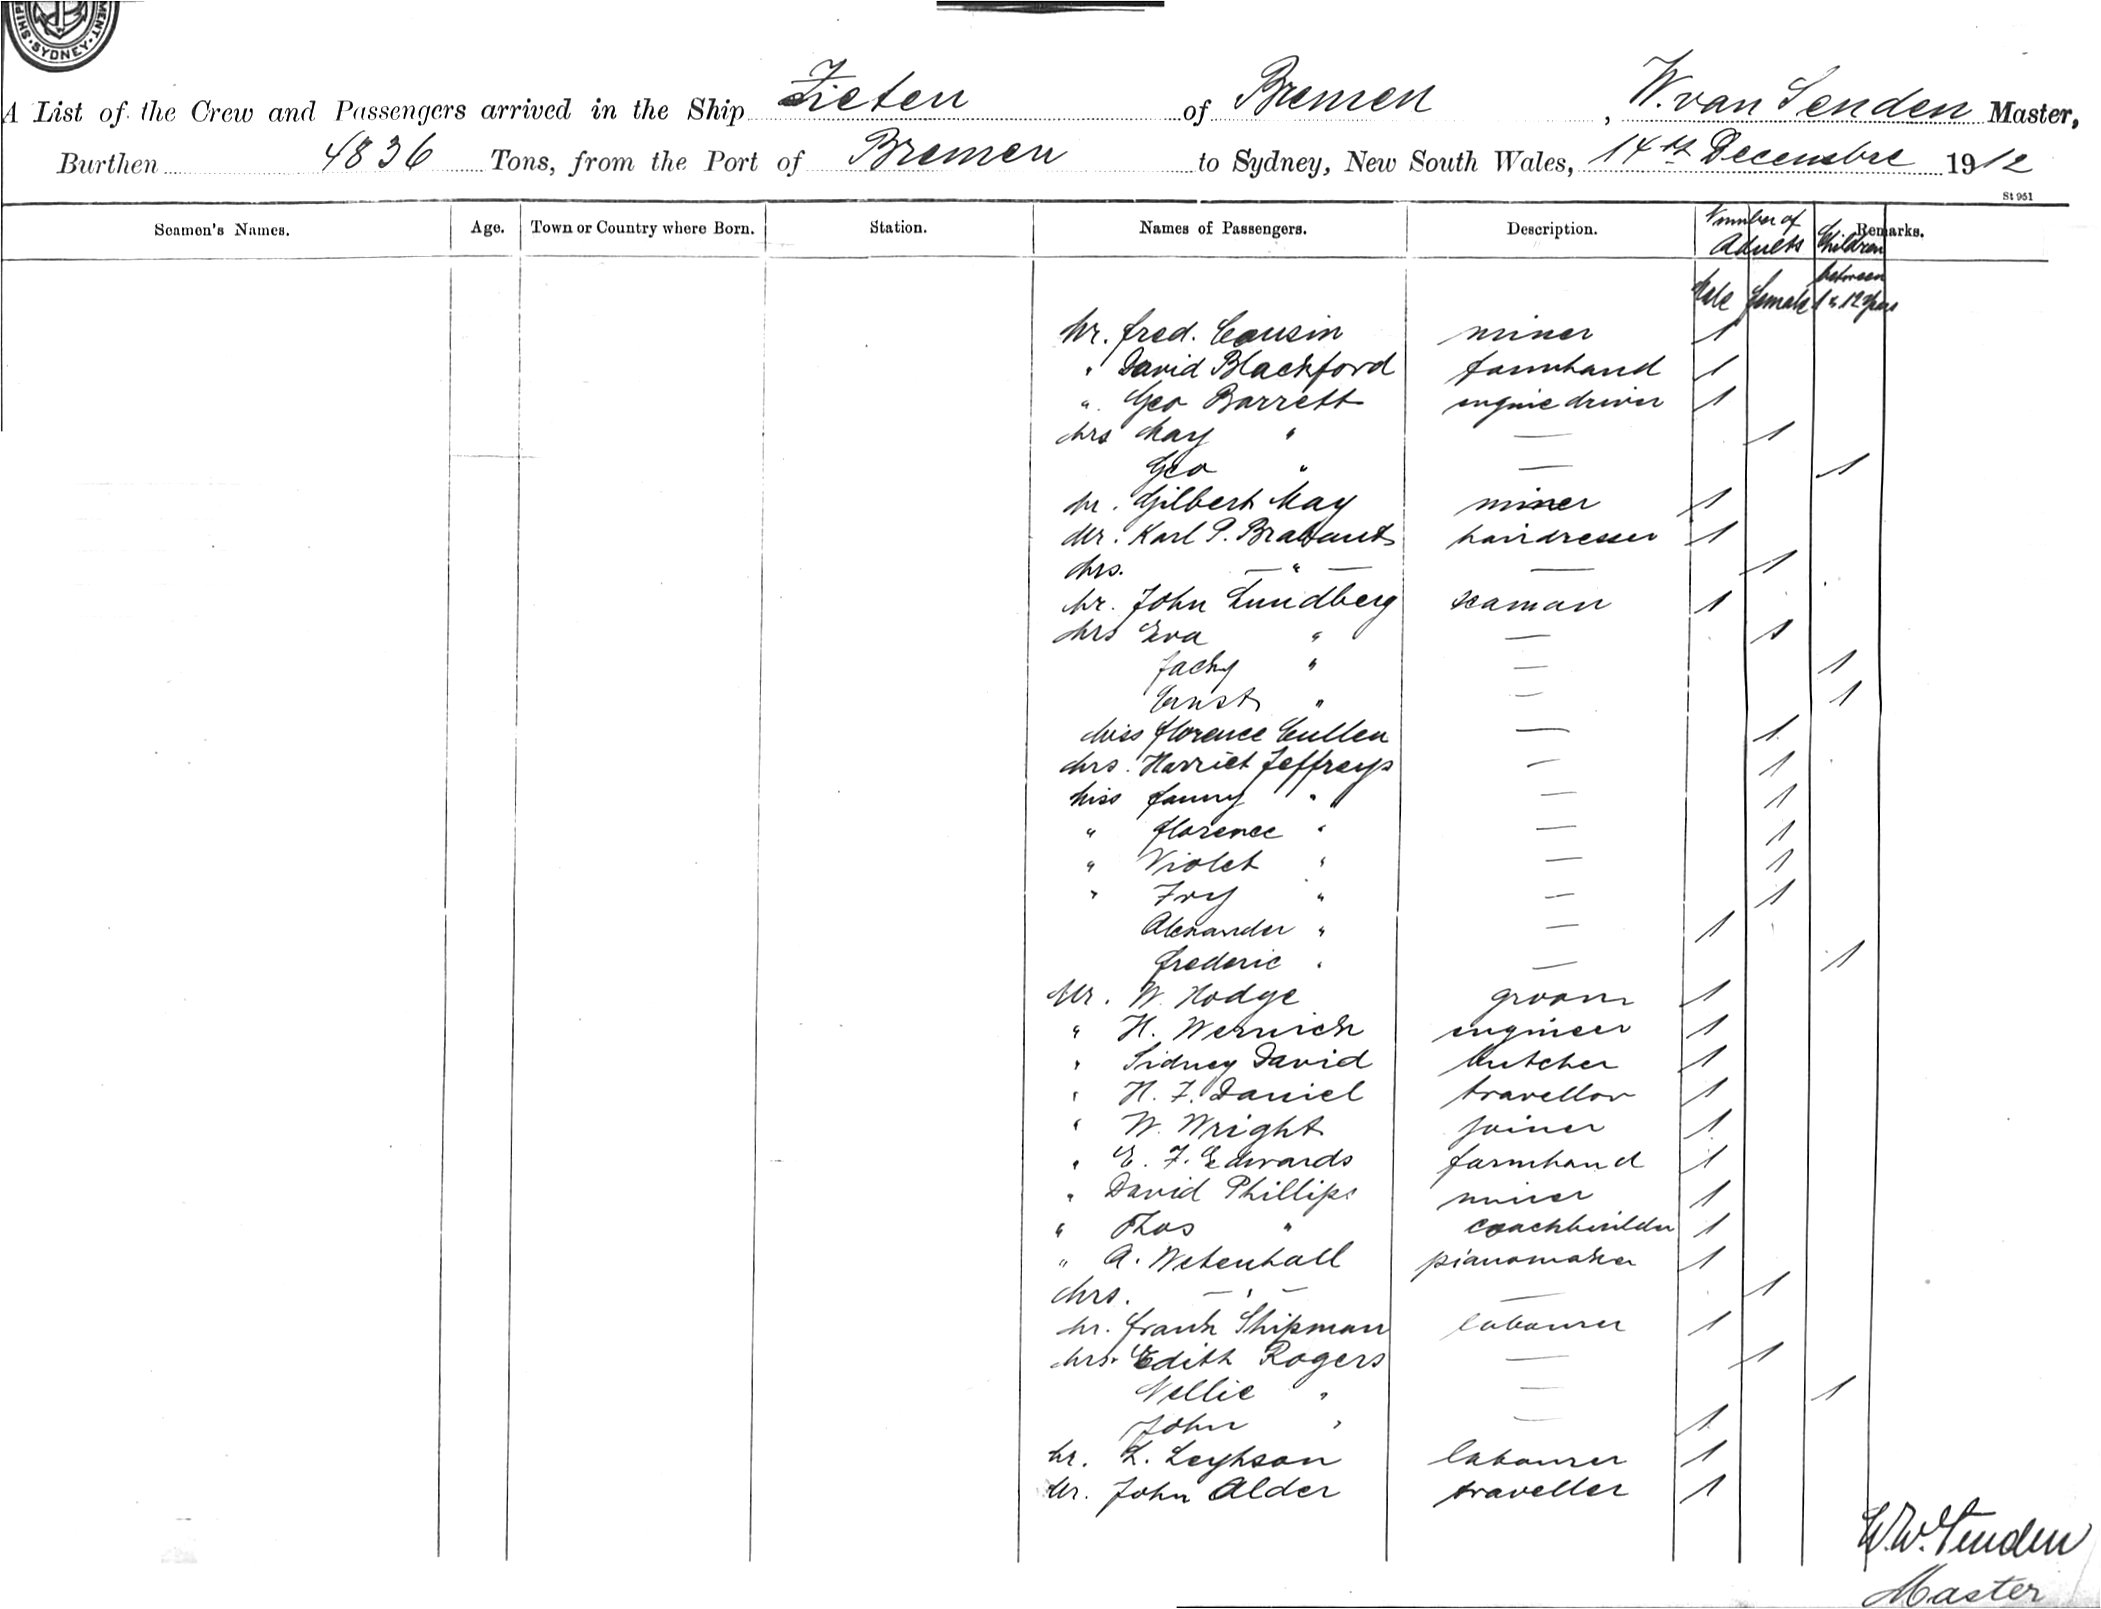 SHIP MENT. SYDNEY.
A List of the Crew and Passengers arrived in the Ship Zieten of Bremen, W. van Senden Master,
Burthen 4836 Tons, from the Port of Bremen to Sydney, New South Wales, 14th Decembre 1912
St 951
Seamen's Names. Age. Town or Country where Born. Station. Names of Passengers. Description. Number of Adults Children Remarks.
Male female between 1 & 12 years
Mr. Fred. Cousin miner 1
" David Blackford farmhand 1
" Geo Barrett engine driver 1
Mrs May " — 1
Geo " — 1
Mr. Gilbert May miner 1
Mr. Karl P. Brabant hairdresser 1
Mrs. — " — — 1
Mr. John Lundberg seaman 1
Mrs Eva " — 1
Jacky " — 1
Ernst " — 1
Miss Florence Cullen — 1
Mrs. Harriet Jeffreys — 1
Miss Fanny " — 1
" Florence " — 1
" Violet " — 1
" Ivy " — 1
Alexander " — 1
Frederic " — 1
Mr. W. Hodge groom 1
" H. Wernich engineer 1
" Sidney David butcher 1
" H. F. Daniel travellor 1
" W. Wright joiner 1
" E. F. Edwards farmhand 1
" David Phillips miner 1
" Thos " coachbuilder 1
" A. Wetenhall pianomaker 1
Mrs. — " — — 1
Mr. Frank Shipman labourer 1
Mrs. Edith Rogers — 1
Nellie " — 1
John " — 1
Mr. L. Leyhson labourer 1
Mr. John Alder traveller 1
W. v. Senden
Master